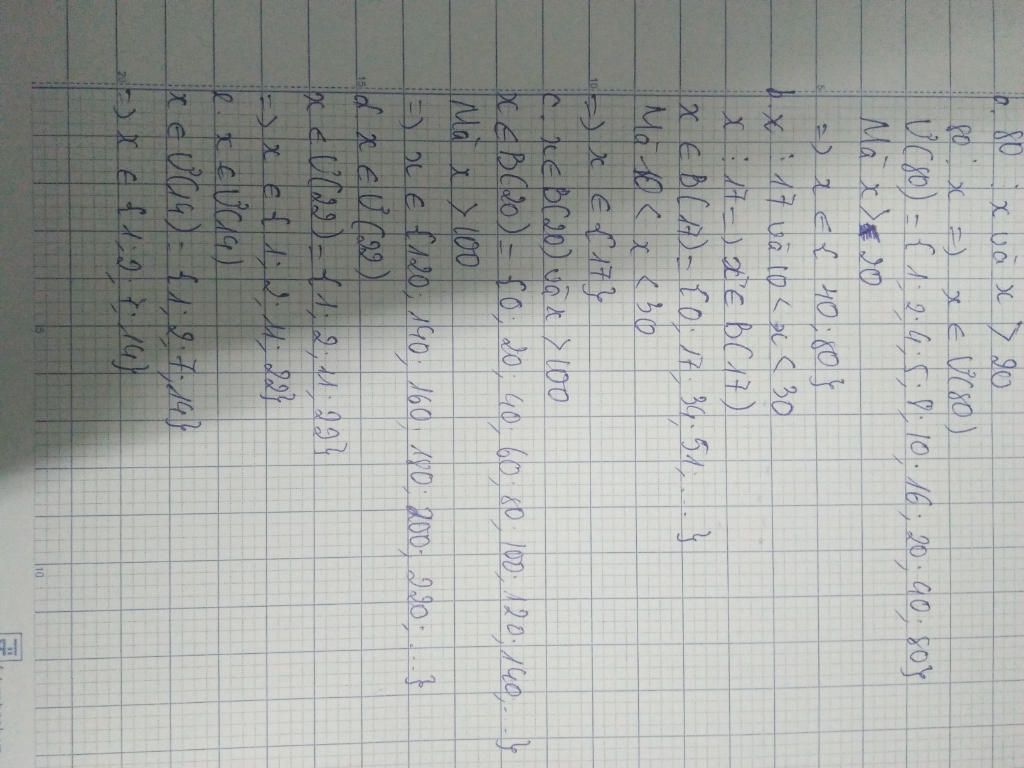 a. 80 ⋮ x và x > 20
80 ⋮ x => x ∈ Ư(80)
Ư(80) = {1; 2; 4; 5; 8; 10; 16; 20; 40; 80}
Mà x > 20
=> x ∈ {40; 80}
b. x ⋮ 17 và 10 < x < 30
x ⋮ 17 => x ∈ B(17)
x ∈ B(17) = {0; 17; 34; 51; ...}
Mà 10 < x < 30
=> x ∈ {17}
c. x ∈ B(20) và x > 100
x ∈ B(20) = {0; 20; 40; 60; 80; 100; 120; 140; ...}
Mà x > 100
=> x ∈ {120; 140; 160; 180; 200; 220; ...}
d. x ∈ Ư(22)
x ∈ Ư(22) = {1; 2; 11; 22}
=> x ∈ {1; 2; 11; 22}
e. x ∈ Ư(14)
x ∈ Ư(14) = {1; 2; 7; 14}
=> x ∈ {1; 2; 7; 14}
5
10
15
20
15
10